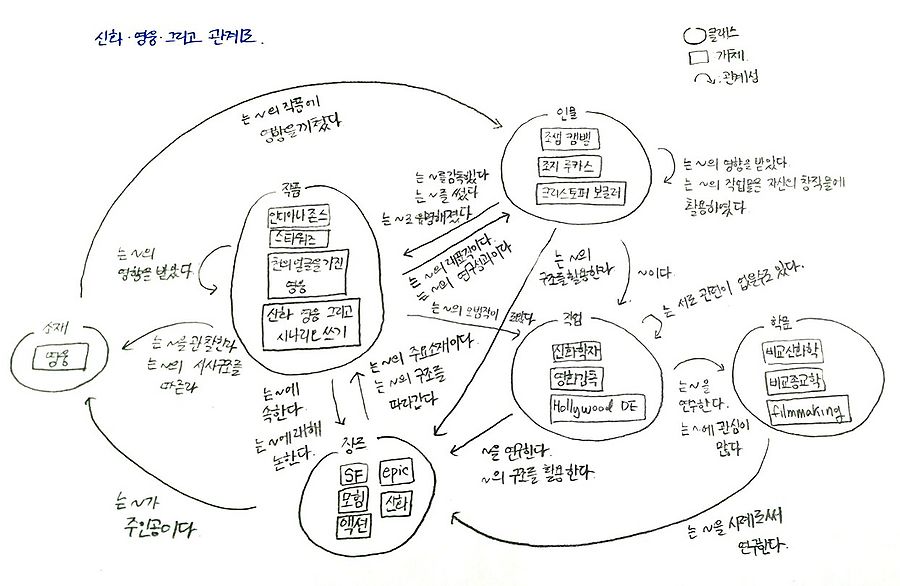 신화·영웅·그리고 관계도.
클래스
개체.
관계성
는 ~의 작품이
영향을 끼쳤다
인물
조셉 캠벨
조지 루카스
크리스토퍼 보글러
는 ~의 영향을 받았다.
는 ~의 작업물을 자신의 창작물에
활용하였다
는 ~를 감독했다
는 ~를 썼다
는 ~로 유명해졌다
작품
인디아나 존스
스타워즈
천의 얼굴을 가진
영웅
신화 영웅 그리고
시나리오 쓰기
는 ~의
영향을 받았다
는 ~의 대표작이다.
는 ~의 연구성과이다
는 ~의
구조를 활용한다
~이다.
는 서로 관련이 없을수도 있다.
직업
신화학자
영화감독
Hollywood DE
학문
비교신화학
비교종교학
filmmaking
는 ~을
연구한다.
는 ~에 관심이
많다
소재
영웅
는 ~를 관찰한다
는 ~의 서사구조를
따른다
는 ~에
속한다.
는 ~에 대해
논한다.
는 ~의 주요소재이다.
는 ~의 구조를
따라간다
장르
SF
epic
모험
신화
액션
~을 연구한다.
~의 구조를 활용한다.
는 ~가
주인공이다
는 ~을 사례로써
연구한다.